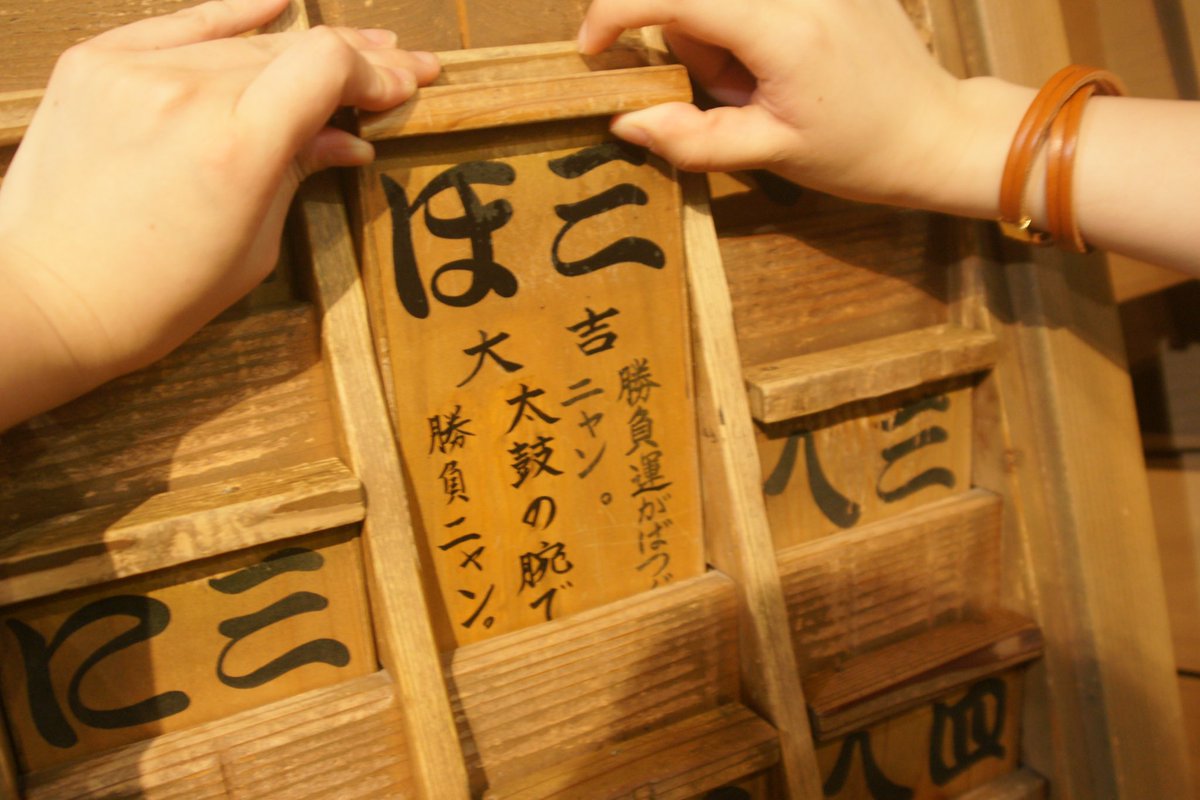 三ほ
吉 勝負運がばつ
ニャン。
大 太鼓の腕で
勝負ニャン。
三に
三八
四八